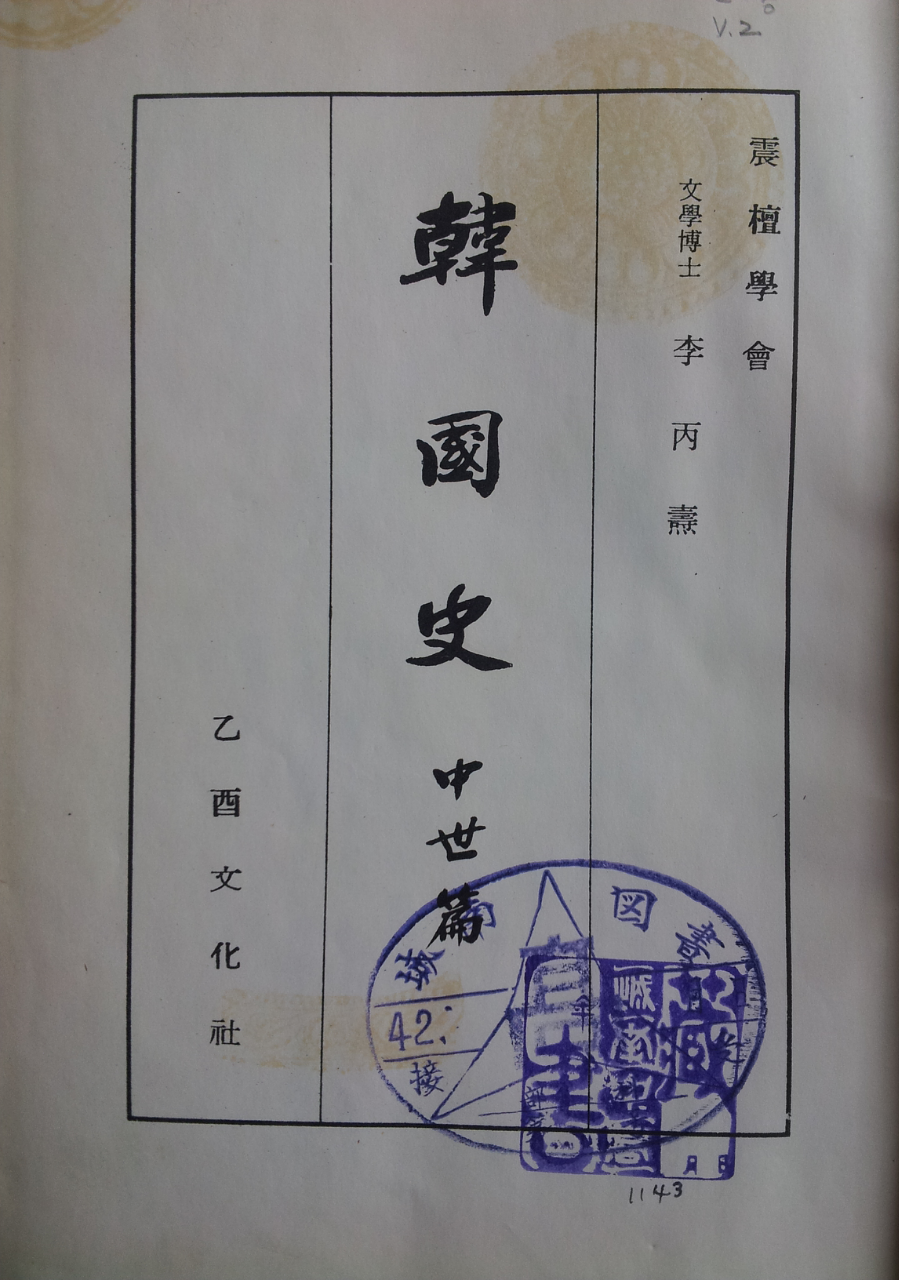 V.2
震檀學會
文學博士 李丙燾
韓國史 中世篇
乙酉文化社
図書
42
接
月日
1143